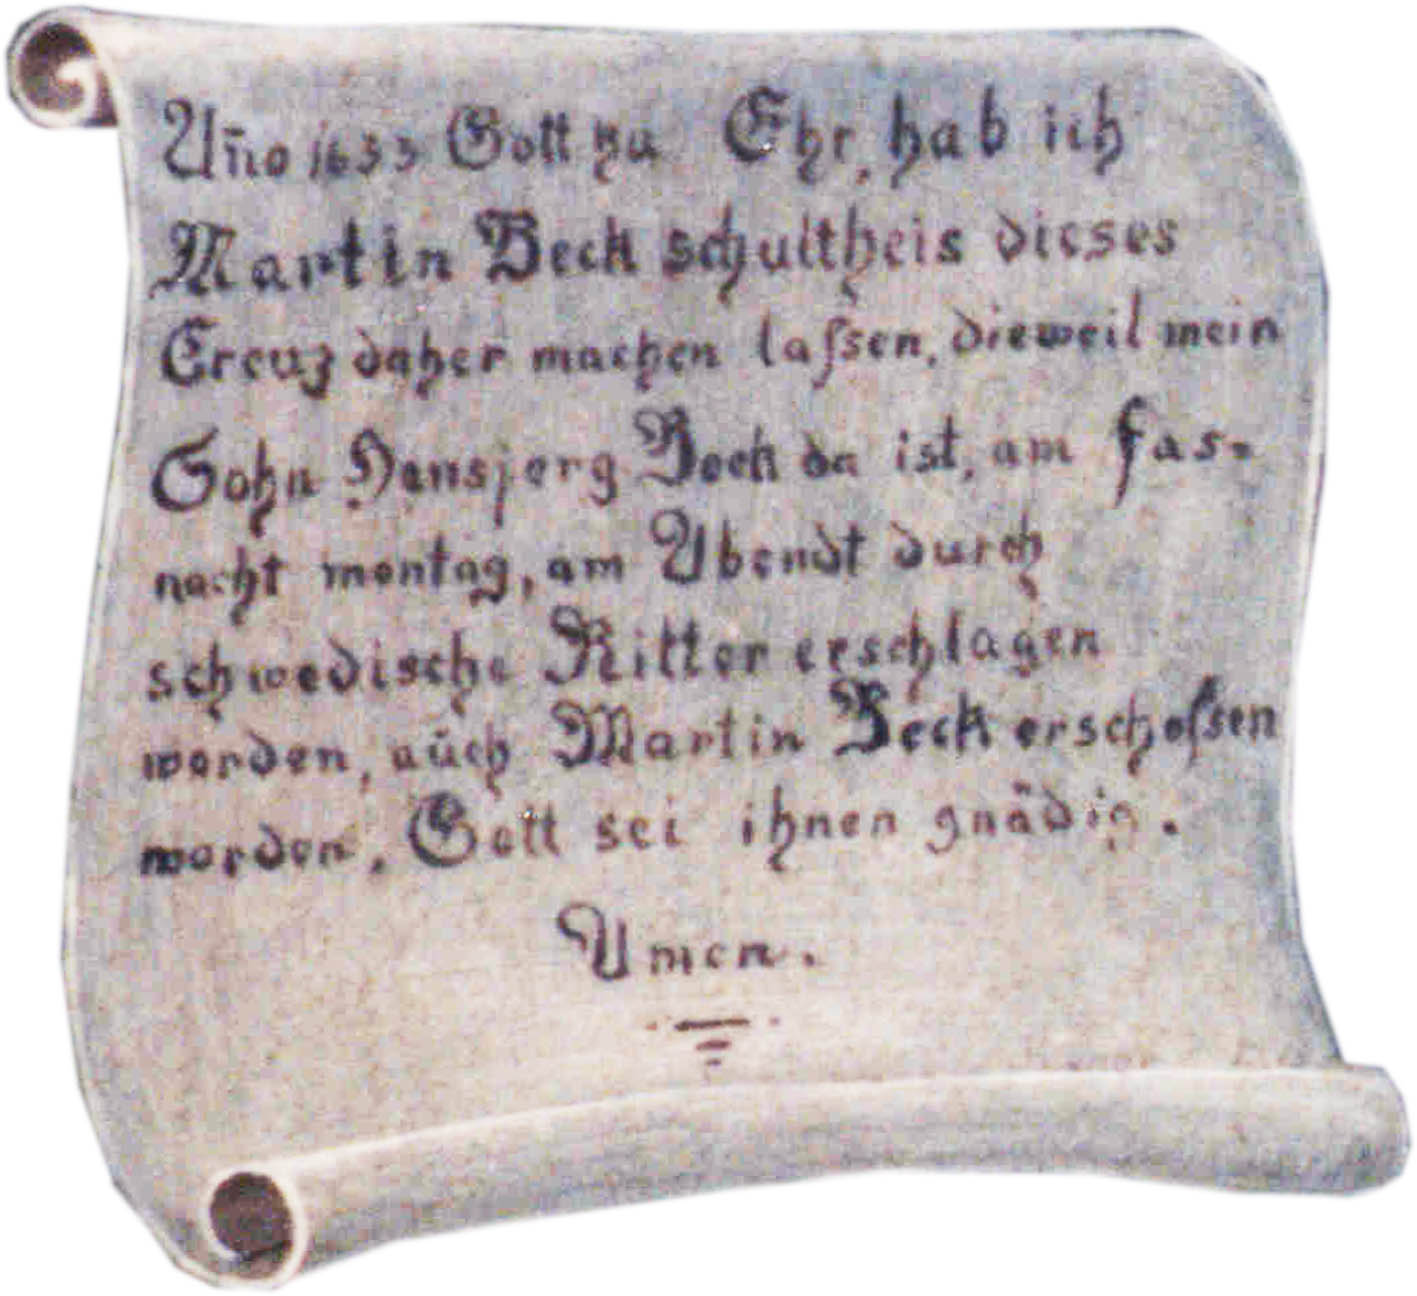 Añno 1633 Gott zu Ehr, hab ich
Martin Beck schultheis dieses
Creuz daher machen laſsen, dieweil mein
Sohn Hansjerg Beck da ist, am Fas-
nacht montag, am Abendt durch
schwedische Ritter erschlagen
worden, auch Martin Beck erschoſsen
worden. Gott sei ihnen gnädig.
Amen.